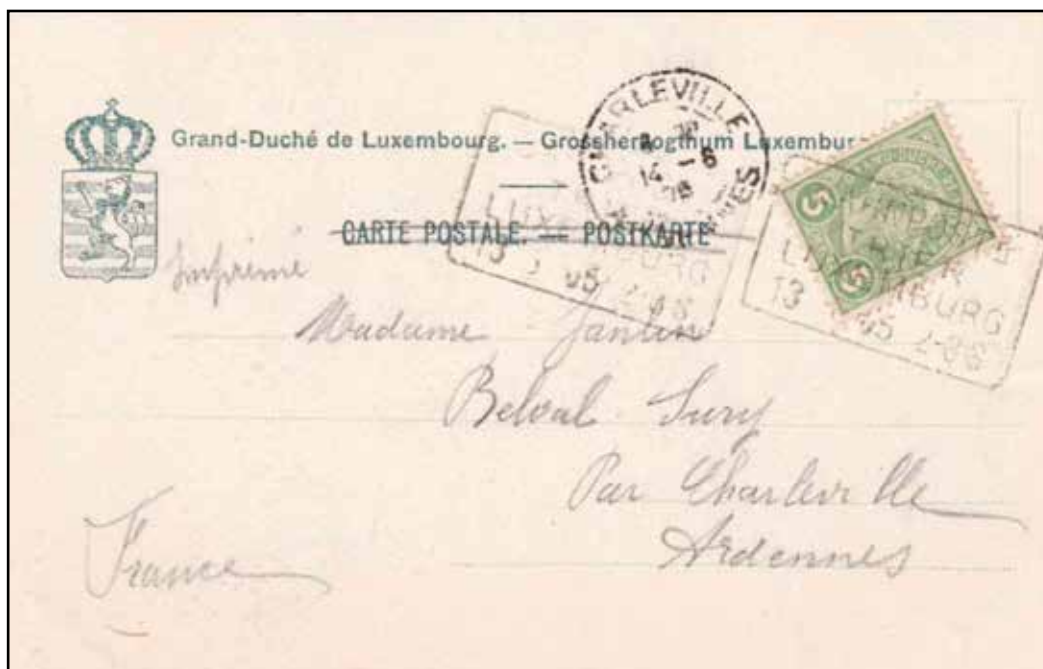 Grand-Duché de Luxembourg. — Grossherzogthum Luxembur
CARTE POSTALE. — POSTKARTE
CHARLEVILLE
14 -6
05
LUX BURG
13 05 4-8 S
5
5
TRIER
L MBURG
13 05 4-8 S
Imprimé
Madame
Belval Sury
Par Charleville
Ardennes
France